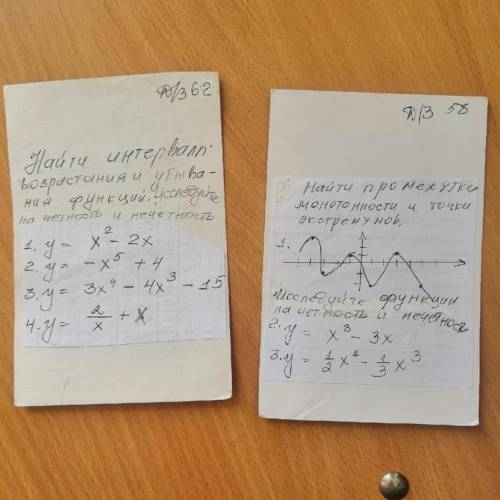 Д/З 62
Найти интервалы
возрастания и убыва-
ния функций. Исследуйте
на четность и нечетность
1. y = x² - 2x
2. y = -x⁵ + 4
3. y = 3x⁴ - 4x³ - 15
4. y = 2/x + x
Д/З 58
Найти промежутки
монотонности и точки
экстремумов.
1.
Исследуйте функции
на четность и нечетность
2. y = x³ - 3x
3. y = 1/2 x² - 1/3 x³